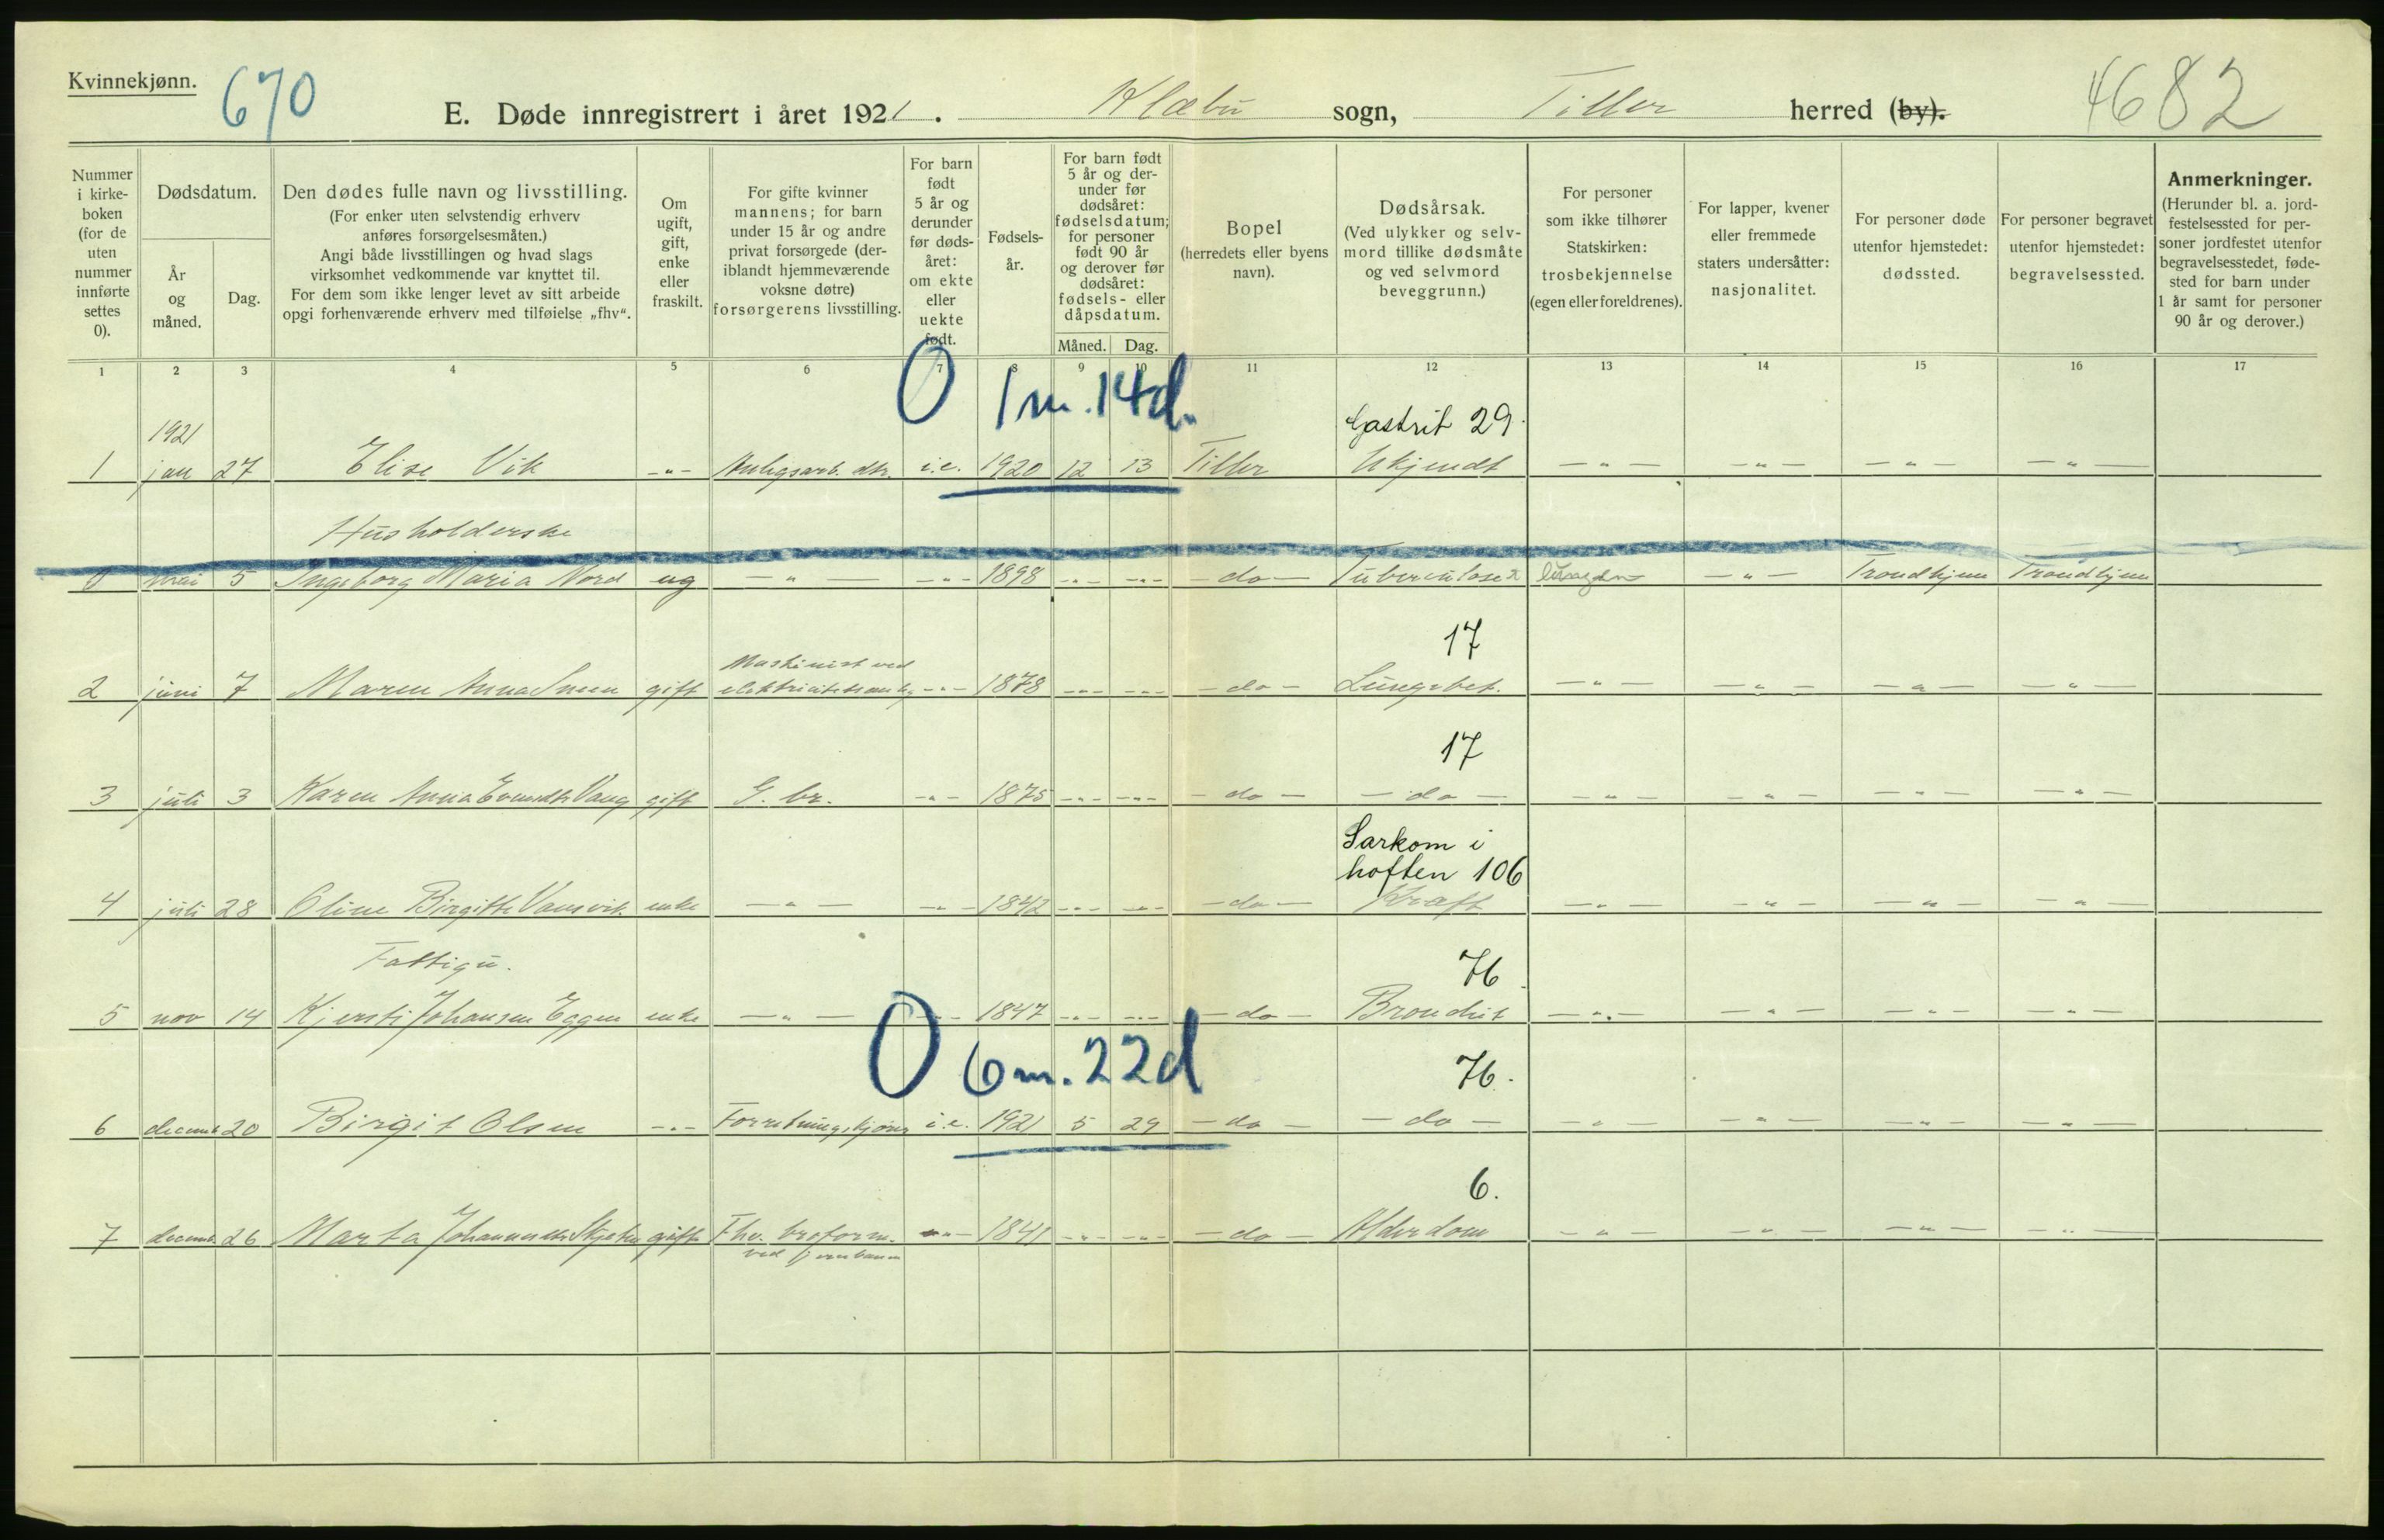 Kvinnekjønn.
670
E. Døde innregistrert i året 1921. Klæbu sogn, Tiller herred (by).
4682
Nummer i kirkeboken (for de uten nummer innførte settes 0).
Dødsdatum.
År og måned.
Dag.
Den dødes fulle navn og livsstilling.
(For enker uten selvstendig erhverv anføres forsørgelsesmåten.)
Angi både livsstillingen og hvad slags virksomhet vedkommende var knyttet til.
For dem som ikke lenger levet av sitt arbeide opgi forhenværende erhverv med tilføielse „fhv“.
Om ugift, gift, enke eller fraskilt.
For gifte kvinner mannens; for barn under 15 år og andre privat forsørgede (deriblandt hjemmeværende voksne døtre) forsørgerens livsstilling.
For barn født 5 år og derunder før dødsåret: om ekte eller uekte født.
Fødselsår.
For barn født 5 år og derunder før dødsåret: fødselsdatum; for personer født 90 år og derover før dødsåret: fødsels- eller dåpsdatum.
Måned. Dag.
Bopel (herredets eller byens navn).
Dødsårsak.
(Ved ulykker og selvmord tillike dødsmåte og ved selvmord beveggrunn.)
For personer som ikke tilhører Statskirken: trosbekjennelse (egen eller foreldrenes).
For lapper, kvener eller fremmede staters undersåtter: nasjonalitet.
For personer døde utenfor hjemstedet: dødssted.
For personer begravet utenfor hjemstedet: begravelsessted.
Anmerkninger.
(Herunder bl. a. jordfestelsessted for personer jordfestet utenfor begravelsesstedet, fødested for barn under 1 år samt for personer 90 år og derover.)
1 2 3 4 5 6 7 8 9 10 11 12 13 14 15 16 17
0 1 m. 14 d.
1921 Gastrit 29.
1 jan 27 Elise Vik -"- dtr. i.e. 1920 12 13 Tiller Ukjendt -"- -"- -"- -"-
Husholderske
0 mai 5 Ingeborg Maria Nord ug -"- -"- 1898 -"- -"- do Tuberculose lungene -"- Trondhjem Trondhjem
17
Maskinist ved
2 juni 7 Maren Anna gift 1878 -"- -"- do Lungebet. -"- -"- -"- -"-
17
3 juli 3 Karen Anna Vang gift G. br. -"- 1875 -"- -"- do do -"- -"- -"- -"-
Sarkom i
hoften 106
4 juli 28 Oline Birgitte enke -"- -"- 1842 -"- -"- do Kræft -"- -"- -"- -"-
Fattigu. 76
5 nov 14 Kjersti Johansen Eggen enke -"- 1847 -"- -"- do Bronchit -"- -"- -"- -"-
0 6 m. 22 d 76.
6 decemb 20 Birgit Olsen -"- i.e. 1921 5 29 do do -"- -"- -"- -"-
6.
7 decemb. 26 Marta gift Fhv. broform. -"- 1841 -"- -"- do Alderdom -"- -"- -"- -"-
ved jernbanen